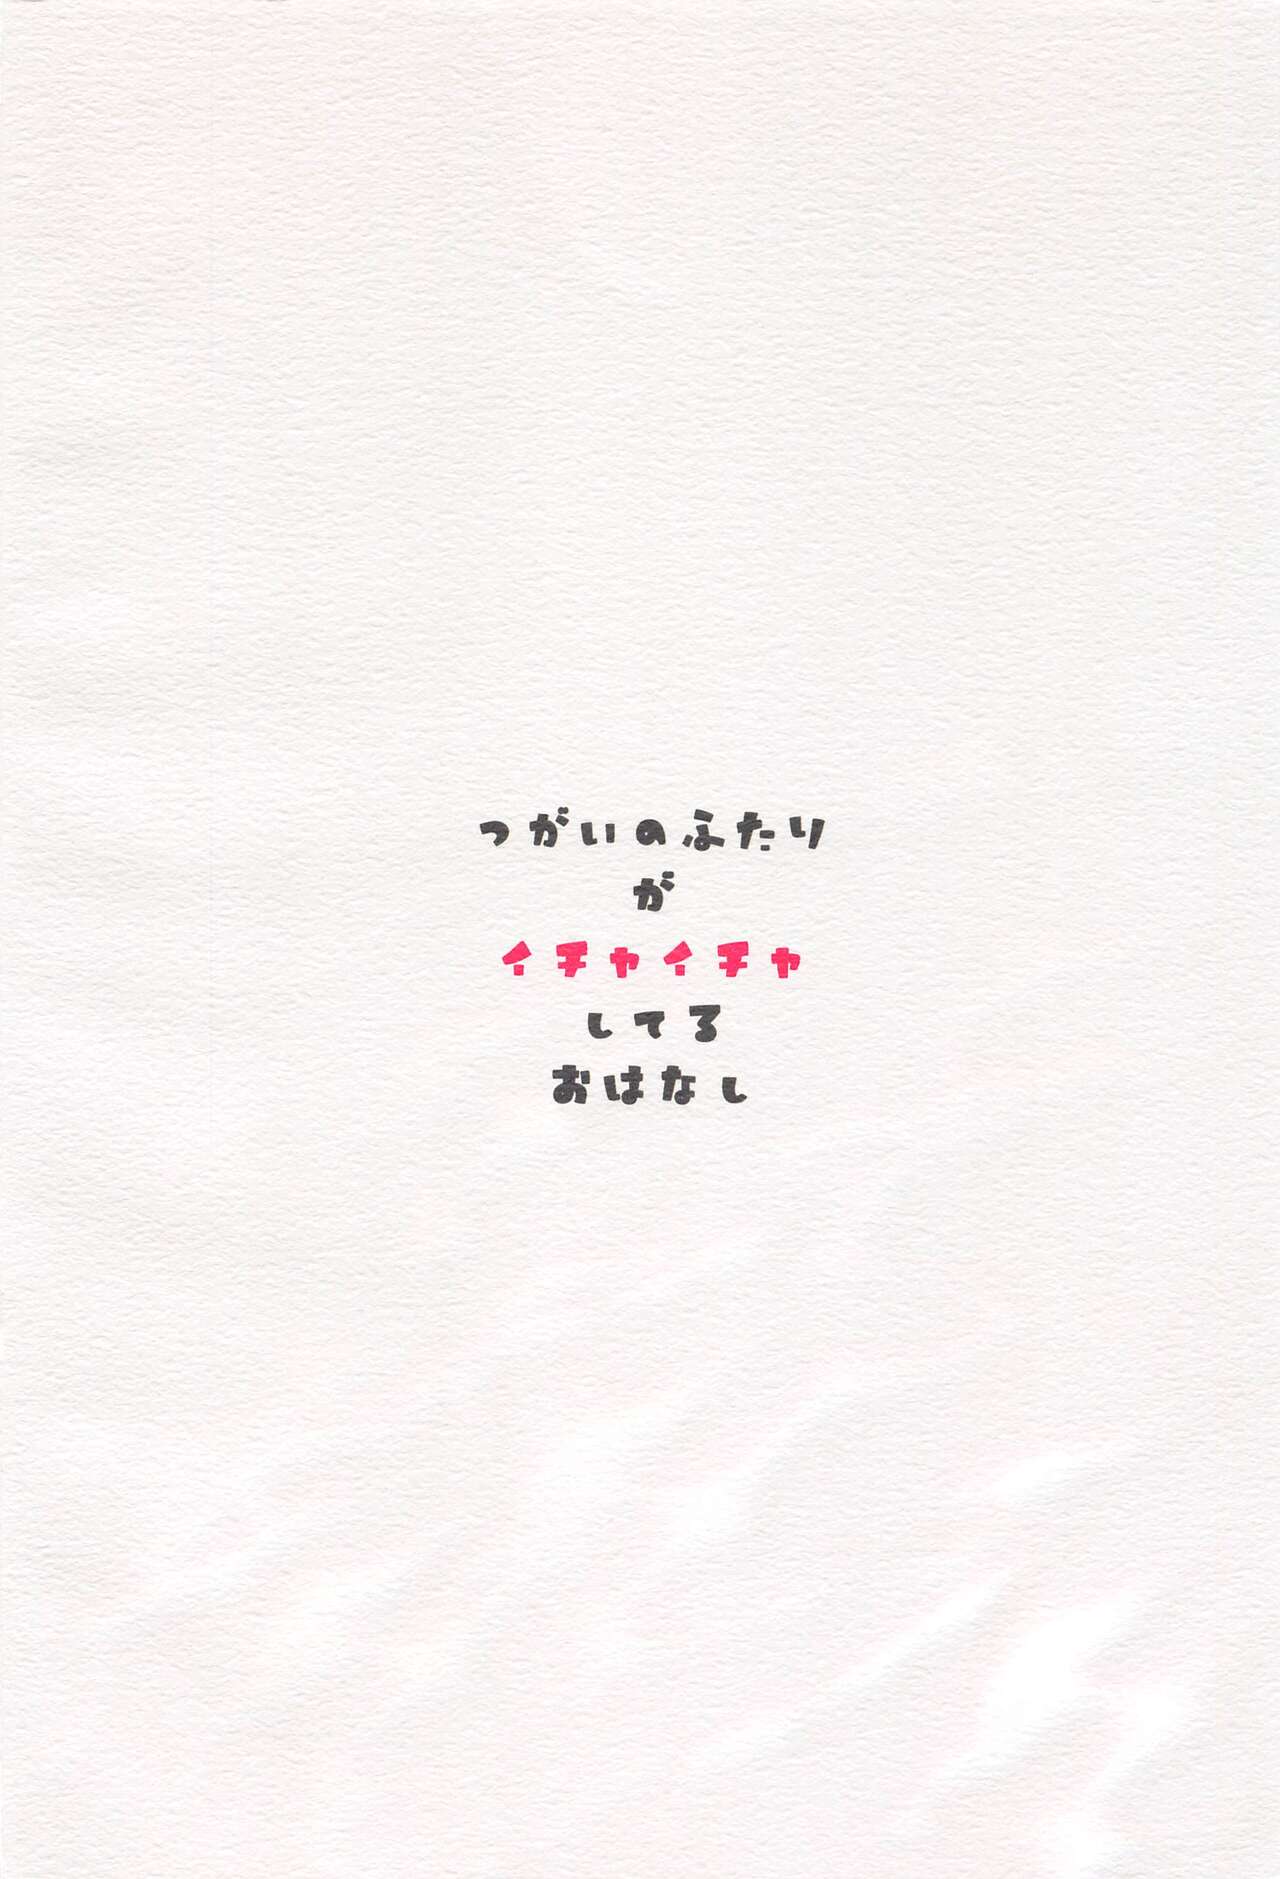 つがいのふたり
が
イチャイチャ
してる
おはなし